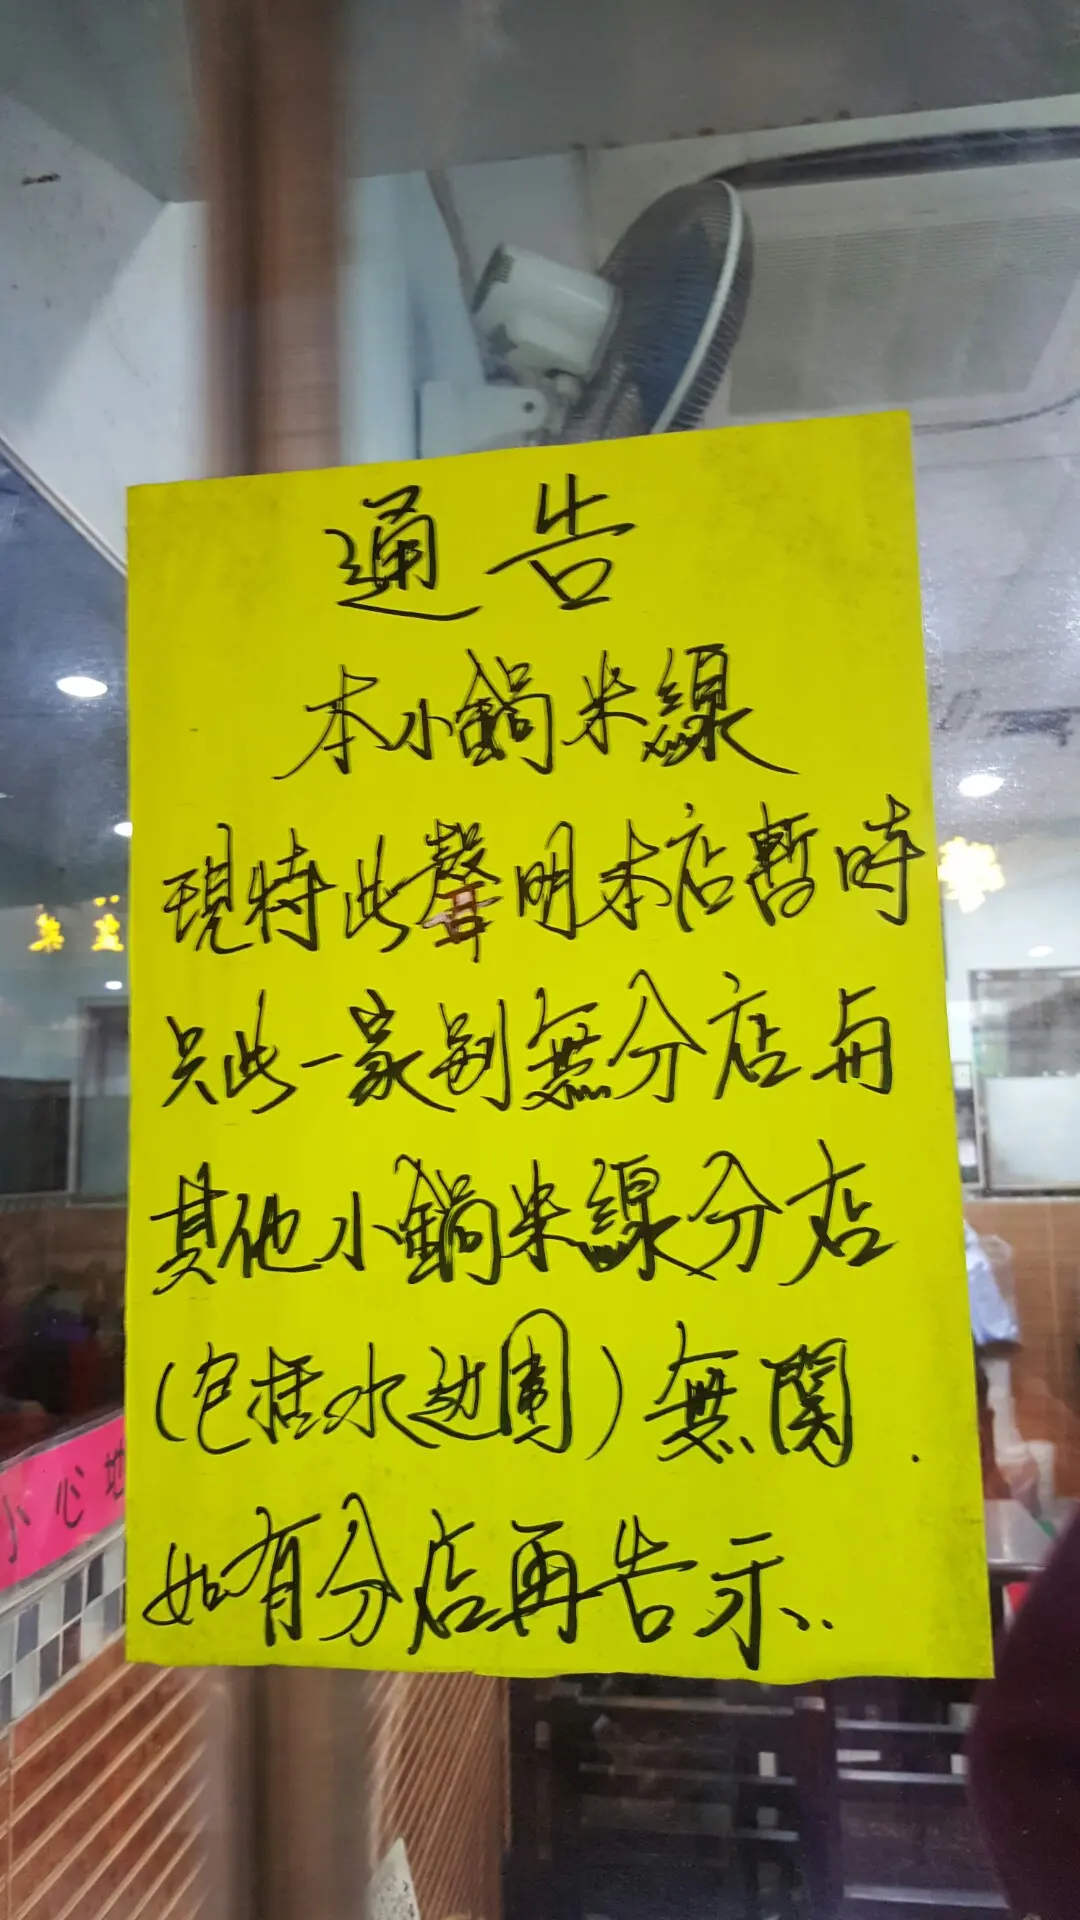 通告
本小鍋米線
現特此聲明本店暫時
只此一家別無分店与
其他小鍋米線分店
(包括水边圍)無関.
如有分店再告示..
小心地